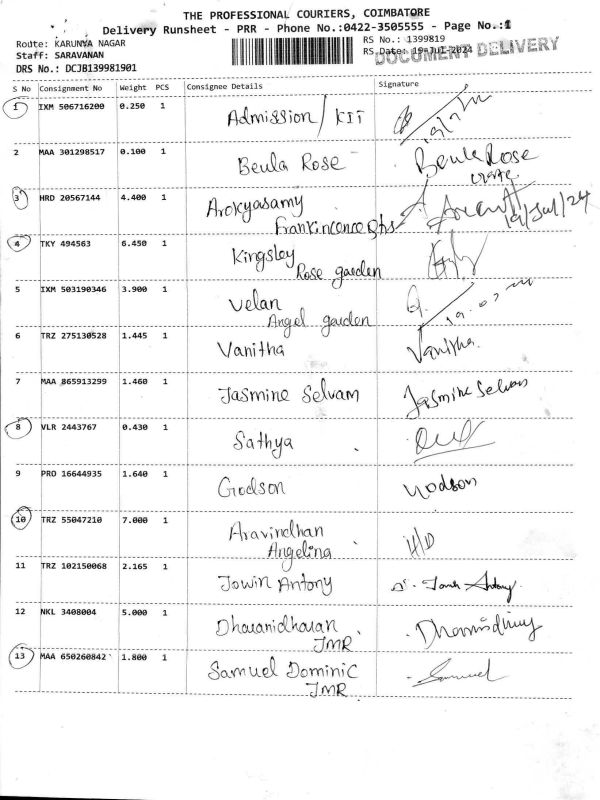 THE PROFESSIONAL COURIERS, COIMBATORE
Delivery Runsheet - PRR - Phone No.:0422-3505555 - Page No.:1
Route: KARUNYA NAGAR
RS No.: 1399819
Staff: SARAVANAN
RS Date: 19-Jul-2024
DOCUMENT DELIVERY
DRS No.: DCJB139981901
S No Consignment No Weight PCS Consignee Details Signature
1 IXM 506716200 0.250 1 Admission/KIT
2 MAA 301298517 0.100 1 Beula Rose Beula Rose
3 HRD 20567144 4.400 1 Arokyasamy
Frankincence Qtrs 19/Jul/24
4 TKY 494563 6.450 1 Kingsley
Rose garden
5 IXM 503190346 3.900 1 Velan
Angel garden
6 TRZ 275130528 1.445 1 Vanitha Vanitha.
7 MAA 865913299 1.460 1 Jasmine Selvam Jasmine Selvam
8 VLR 2443767 0.430 1 Sathya
9 PRO 16644935 1.640 1 Godson Godson
10 TRZ 55047210 7.000 1 Aravindhan
Angelina H/D
11 TRZ 102150068 2.165 1 Jowin Antony
12 NKL 3408004 5.000 1 Dharanidharan
JMR
13 MAA 650260842 1.800 1 Samuel Dominic Samuel
JMR